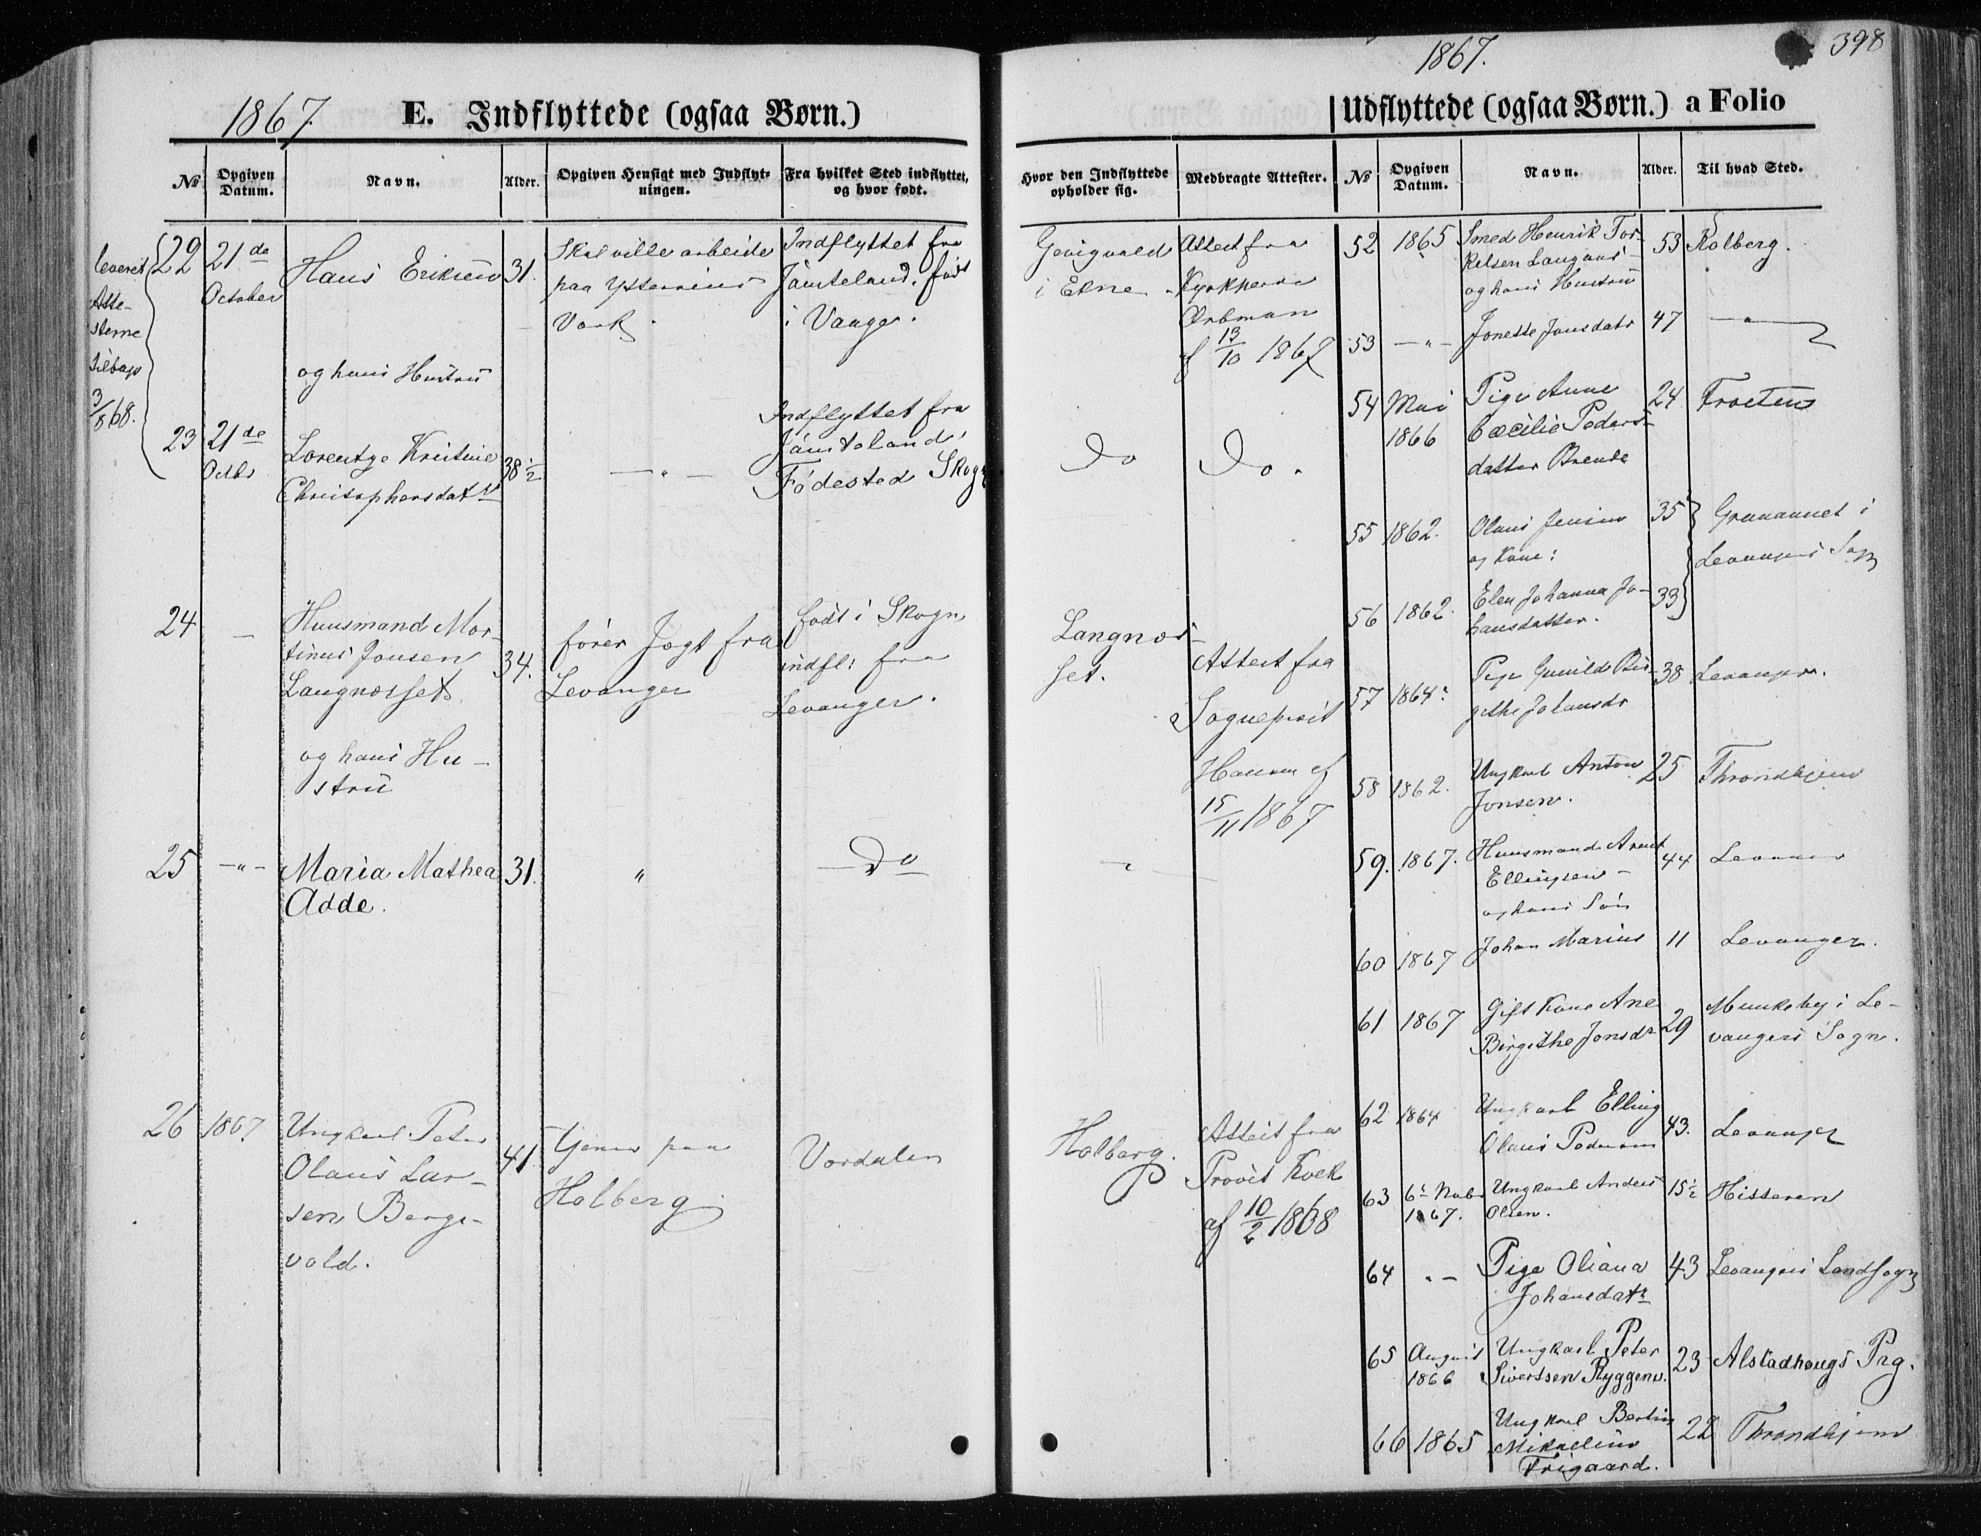 1867.
398
1867.
E. Indflyttede (ogsaa Børn.)
Udflyttede (ogsaa Børn.) a Folio
No
Opgiven Datum.
Navn.
Alder.
Opgiven Hensigt med Indflyt-
ningen.
Fra hvilket Sted indflyttet,
og hvor født.
Hvor den Indflyttede
opholder sig.
Medbragte Attester.
No
Opgiven Datum.
Navn.
Alder.
Til hvad Sted.
leveret
Atte-
sterne
tilbage
3/8 68.
22
21de
October
Hans Eriksen
31.
Skal ville arbeide
paa Ytterøens
Værk.
Indflyttet fra
Jämteland, født
i Vange.
i Ekne
Attest fra
Kyrkherde
af 13/10 1867
og hans Hustru
23
21de
Octbr
Lorentze Kristine
Christophersdatr
38½
— " —
Indflyttet fra
Jämteland,
Fødested Skogn
Do
Do.
24
—
Huusmand Mor-
tinus Jonsen
Langnæsset
34.
fører Jægt fra
Levanger
født i Skogn
indfl: fra
Levanger.
Langnæs-
set.
Attest fra
Sogneprest
af
15/11 1867
og hans Hu-
stru
25
— " —
Maria Mathea
Adde.
31.
"
Do
"
26
1867.
Ungkarl Peter
Olaus Lar-
sen Bergs-
vold.
41.
tjener paa
Holberg
Værdalen
Holberg.
Attest fra
Provst
af 10/2 1868
52
1865
Smed Henrik Tor-
kelsen
og hans Hustru
53
Kolberg.
53
— " —
Jonette Jonsdatr
47
— " —
54
Mai
1866
Pige Anne
Cæcilie Peders-
datter
24
Frosten
55
1862.
Olaus Jensen
og Kone:
35
i
Levangers Sogn
56
1862.
Elen Johanna Jo-
hansdatter.
33
57
1864.
Pige Gunild Bir-
githe Johansdr
38
Levanger.
58
1862.
Ungkarl Anton
Jonsen.
25
Throndhjem
59.
1867.
Huusmand Arent
Ellingsen
og hans Søn
44
Levanger
60
1867
Johan Marius
11
Levanger.
61
1867
Gift Kone Ane
Birgithe Jonsdr
29
Munkeby i Le-
vangers Sogn.
62
1864
Ungkarl Elling
Olaus Pedersen
43.
Levanger
63
6te Novbr
1867.
Ungkarl Anders
Olsen.
15½
Hitteren
64
" —
Pige Oliana
Johansdatr
43
Levangers Landsogn
65
August
1866
Ungkarl Peter
Sivertsen Ryggen.
23
Alstadhougs Prg.
66
1865
Ungkarl Bertin
Mikaelsen
Trigaard.
22
Throndhjem